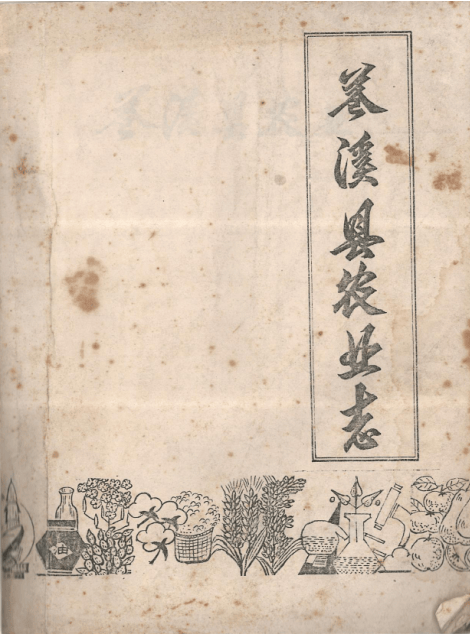 苍溪县农业志
油